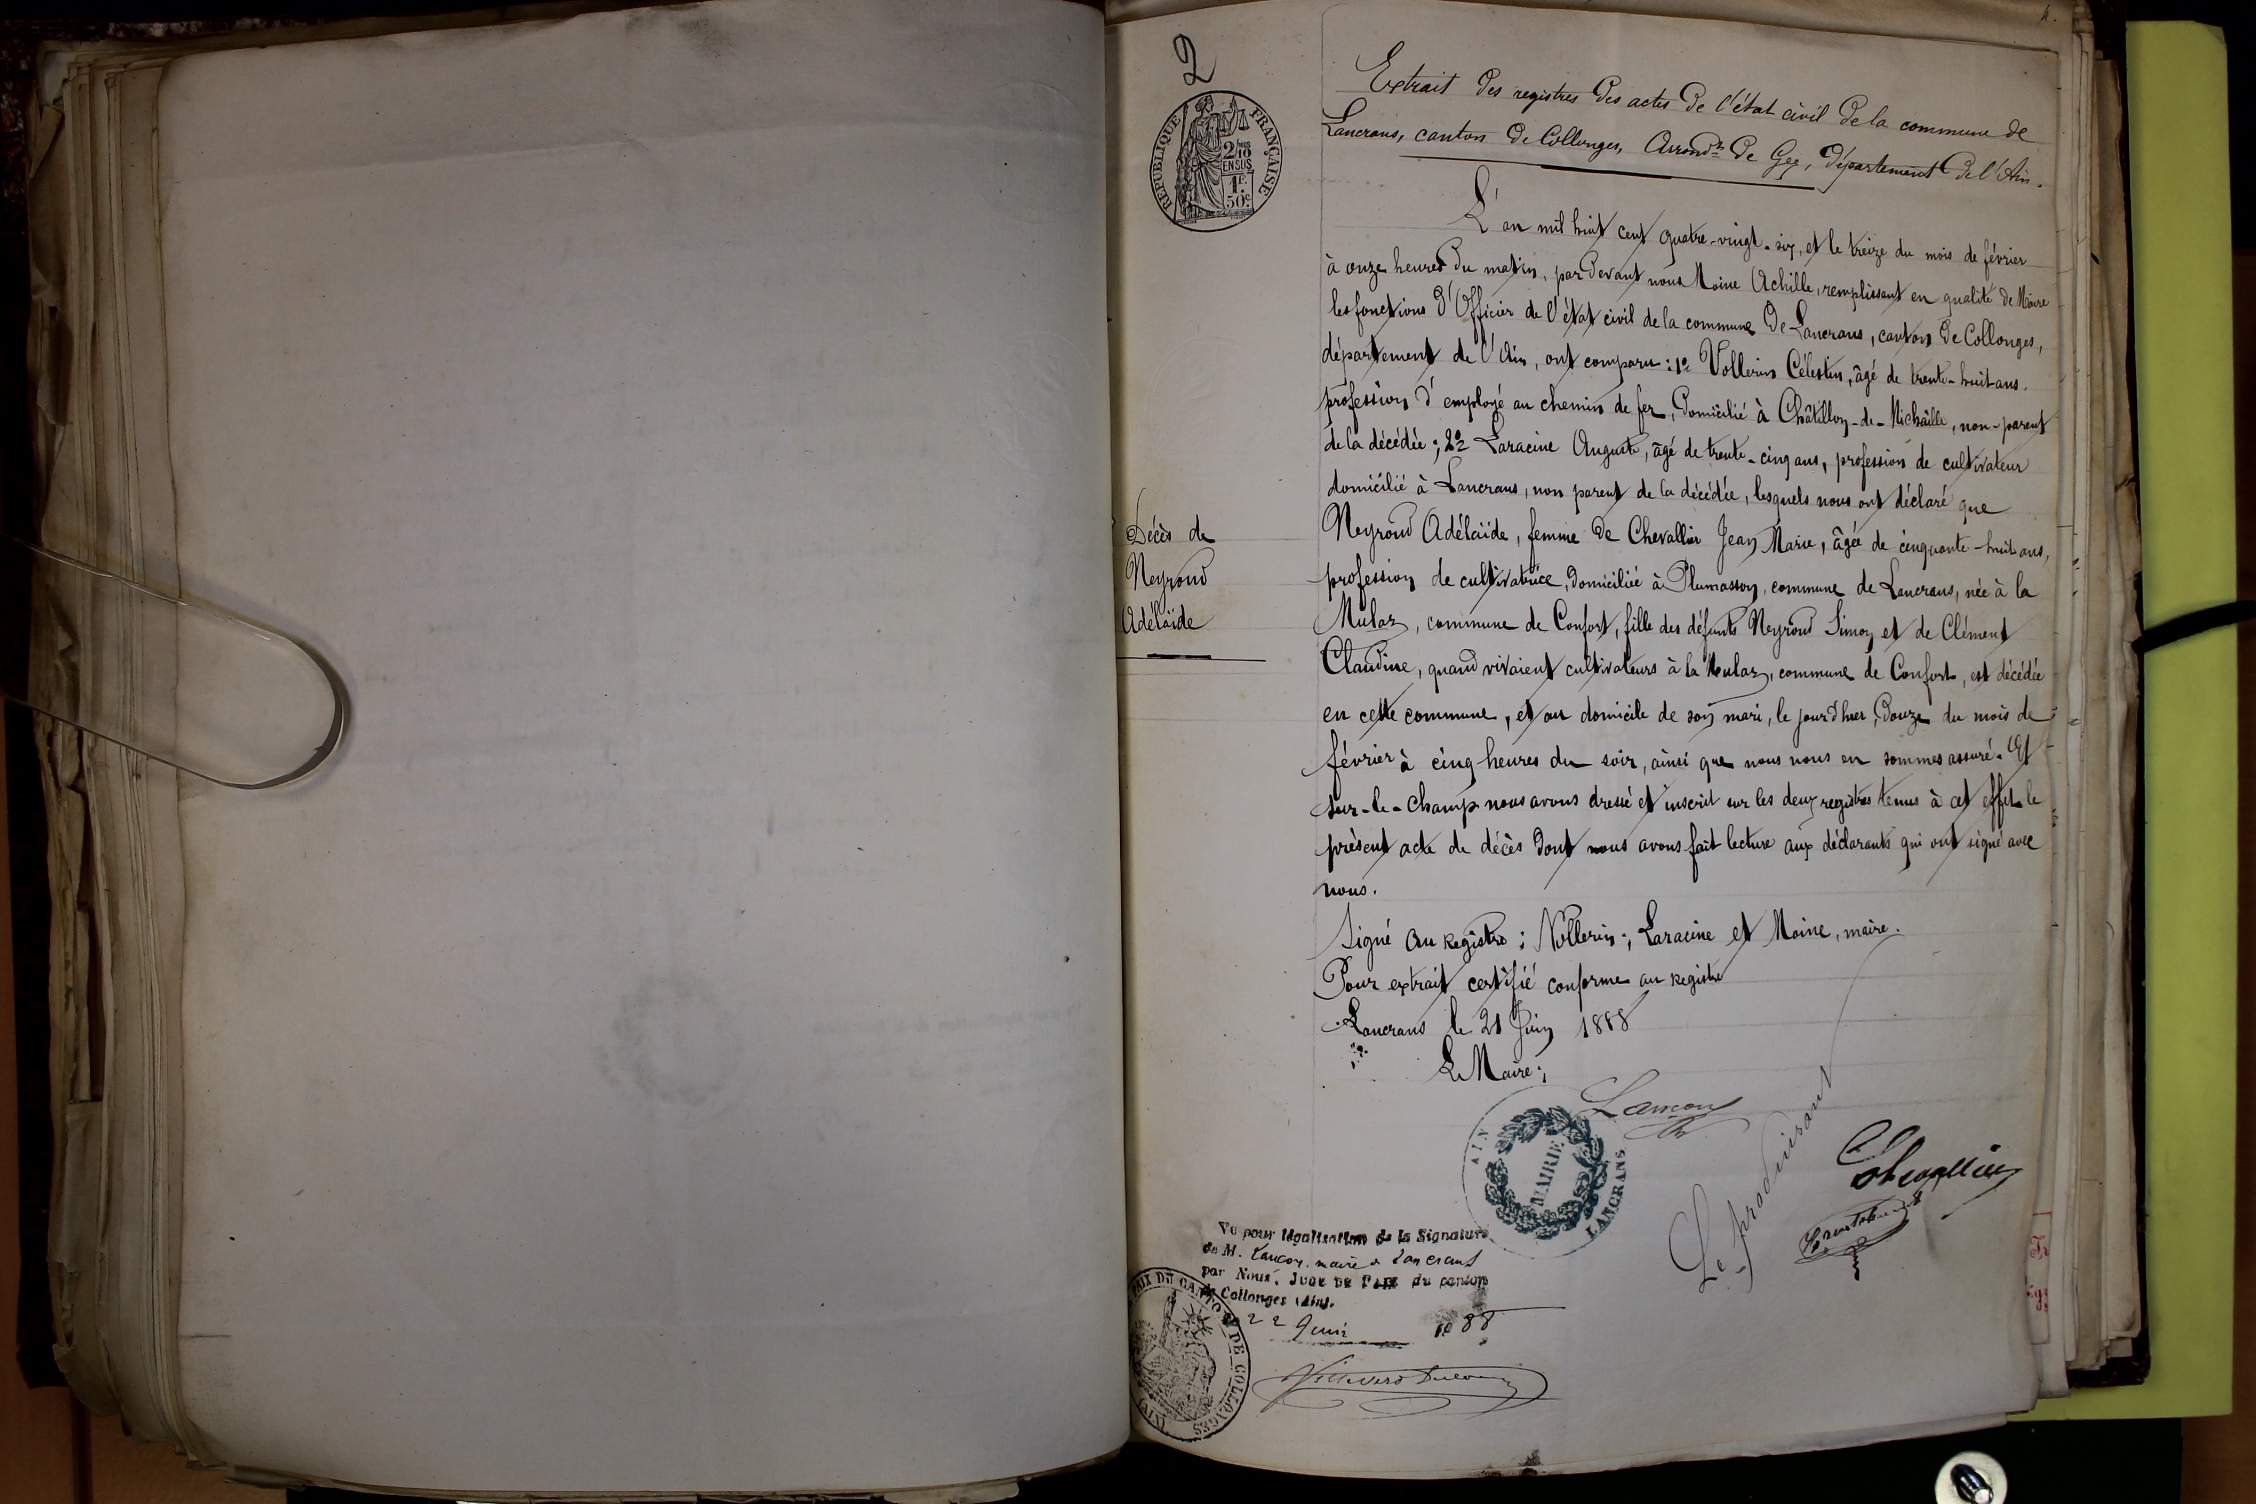 4.
2
RÉPUBLIQUE FRANÇAISE
2/10
EN SUS
1F.
50c
Extrait des registres des actes de l'état civil de la commune de
Lancrans, canton de Collonges, Arrondt de Gex, département de l'Ain.
L'an mil huit cent quatre-vingt-six, et le treize du mois de février
à onze heures du matin, par devant nous Moine Achille, remplissant en qualité de Maire
les fonctions d'Officier de l'état civil de la commune de Lancrans, canton de Collonges,
département de l'Ain, ont comparu : 1o Vollerin Célestin, âgé de trente-huit ans.
profession d'employé au chemin de fer, domicilié à Châtillon-de-Michaille, non-parent
de la décédée ; 2o Laracine Auguste, âgé de trente-cinq ans, profession de cultivateur
domicilié à Lancrans, non parent de la décédée, lesquels nous ont déclaré que
Neyroud Adélaïde, femme de Chevallier Jean Marie, âgée de cinquante-huit ans,
profession de cultivatrice, domiciliée à Plumasson, commune de Lancrans, née à la
Mulaz, commune de Confort, fille des défunts Neyroud Simon et de Clément
Claudine, quand vivaient cultivateurs à la Mulaz, commune de Confort, est décédée
en cette commune, et au domicile de son mari, le jour d'hier, douze du mois de
février à cinq heures du soir, ainsi que nous nous en sommes assuré. Et
sur-le-champ nous avons dressé et inscrit sur les deux registres tenus à cet effet le
présent acte de décès dont nous avons fait lecture aux déclarants qui ont signé avec
nous.
Décès de
Neyroud
Adélaïde
Signé au registre : Vollerin ; Laracine et Moine, maire.
Pour extrait certifié conforme au registre
Lancrans le 21 Juin 1888
Le Maire ;
Lançon
AIN
MAIRIE
LANCRANS
Le produisant
Chevallier
Vu pour légalisation de la Signature
de M. Lançon, maire à Lancrans
par Nous, JUGE DE PAIX du canton
de Collonges (Ain).
22 Juin 1888
PAIX DU CANTON DE COLLONGES
(AIN)